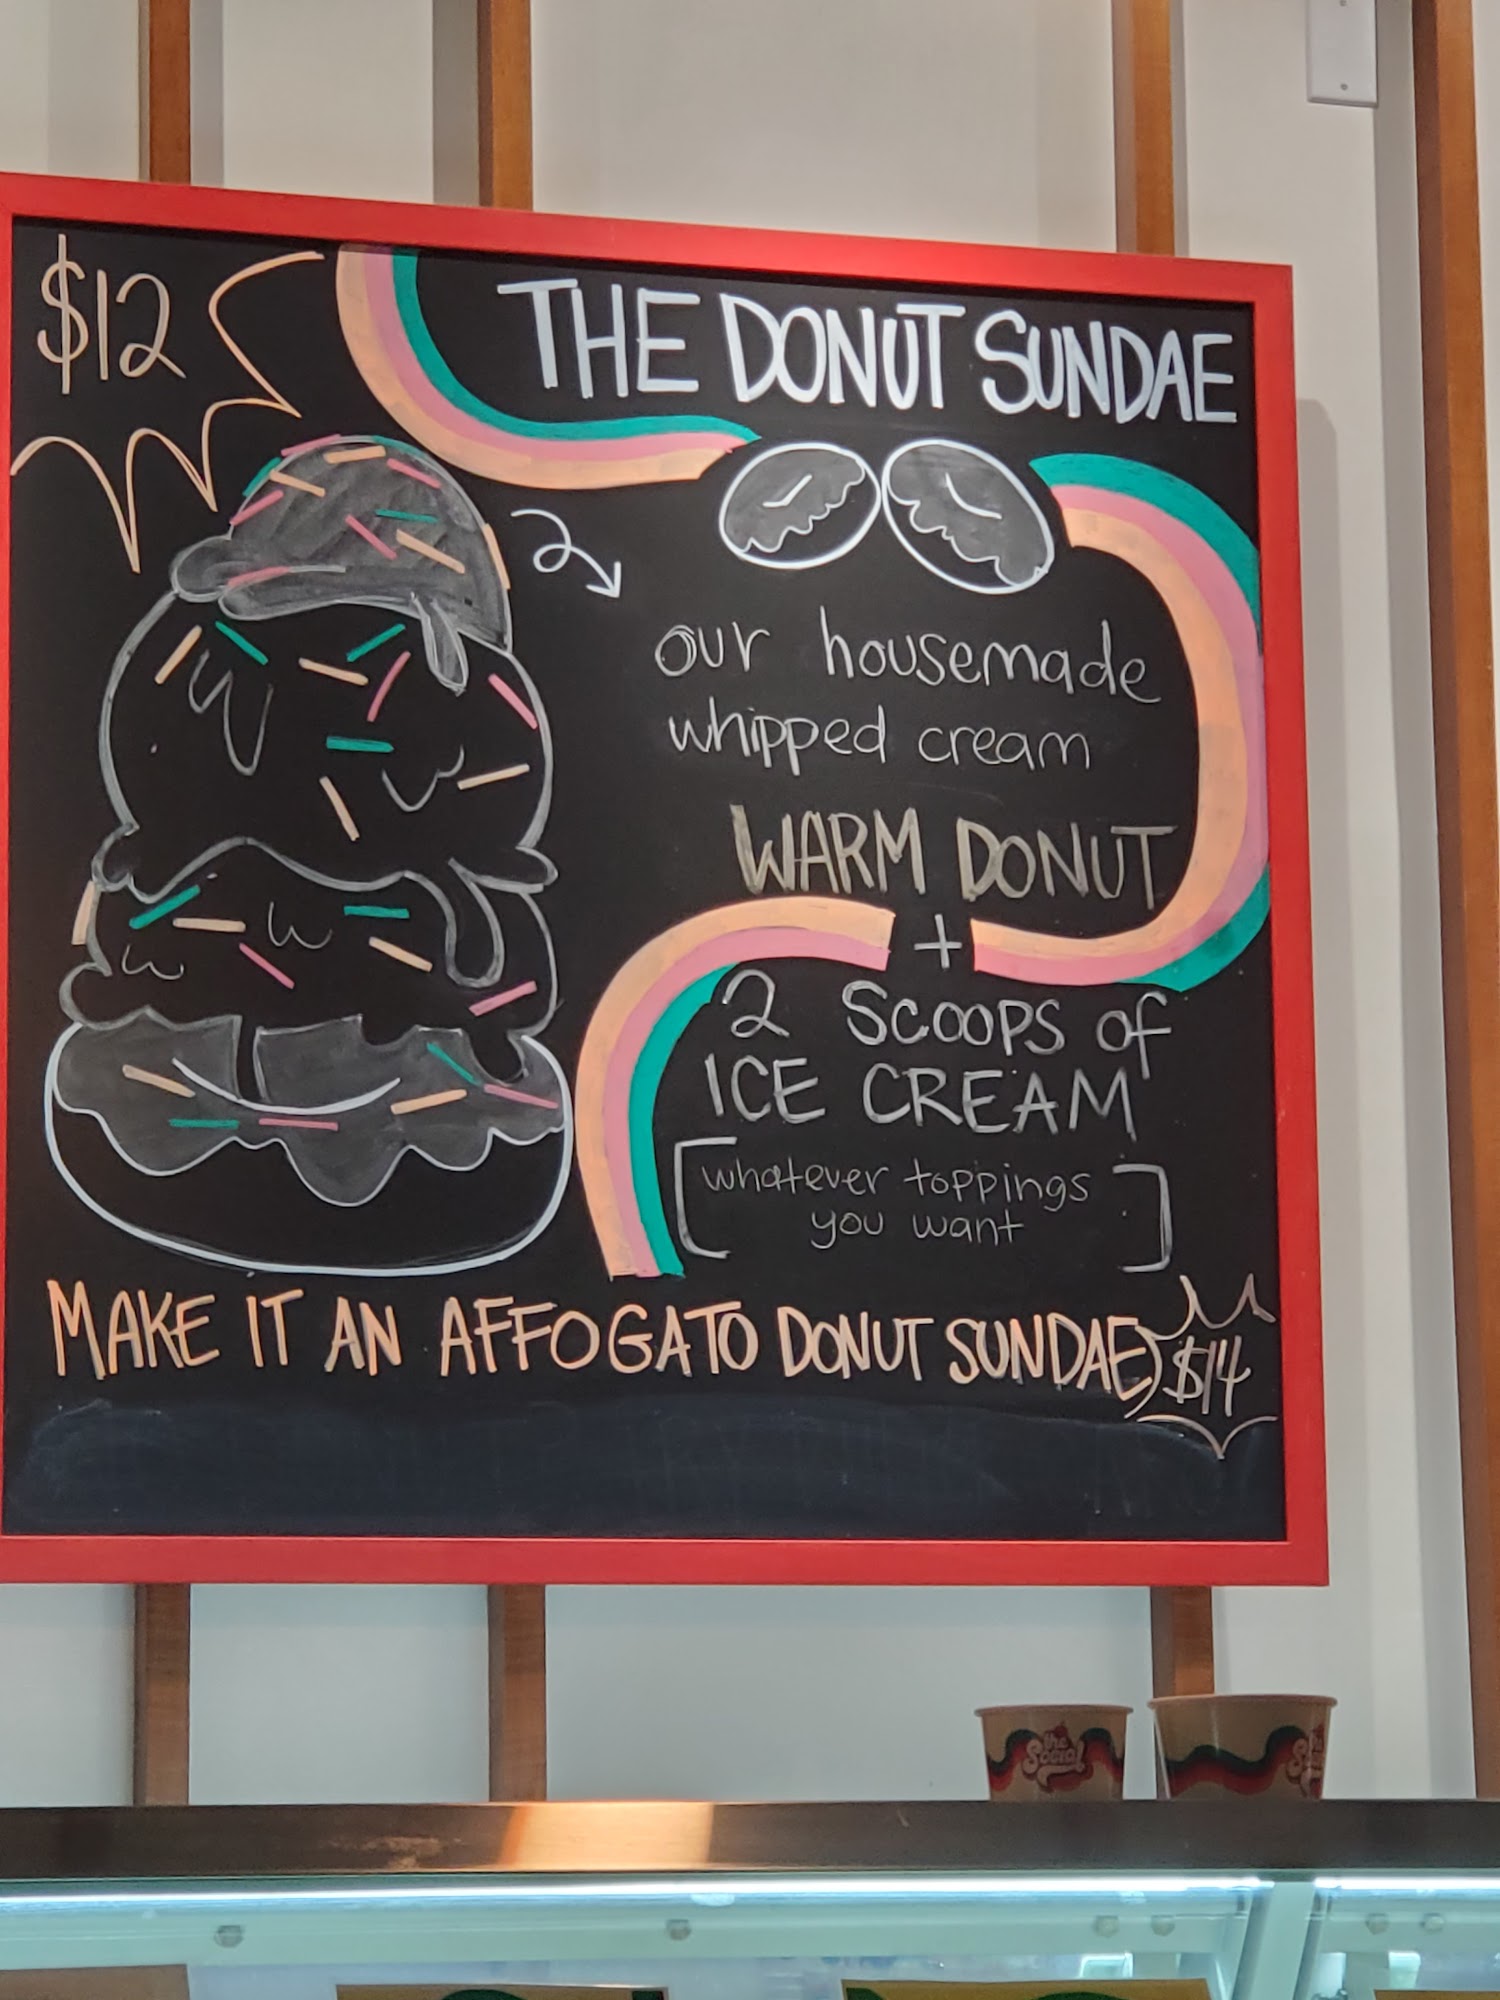 $12
THE DONUT SUNDAE
our housemade
whipped cream
WARM DONUT
+
2 SCOOPS of
ICE CREAM
[whatever toppings
you want]
MAKE IT AN AFFOGATO DONUT SUNDAE) $14
the
Social